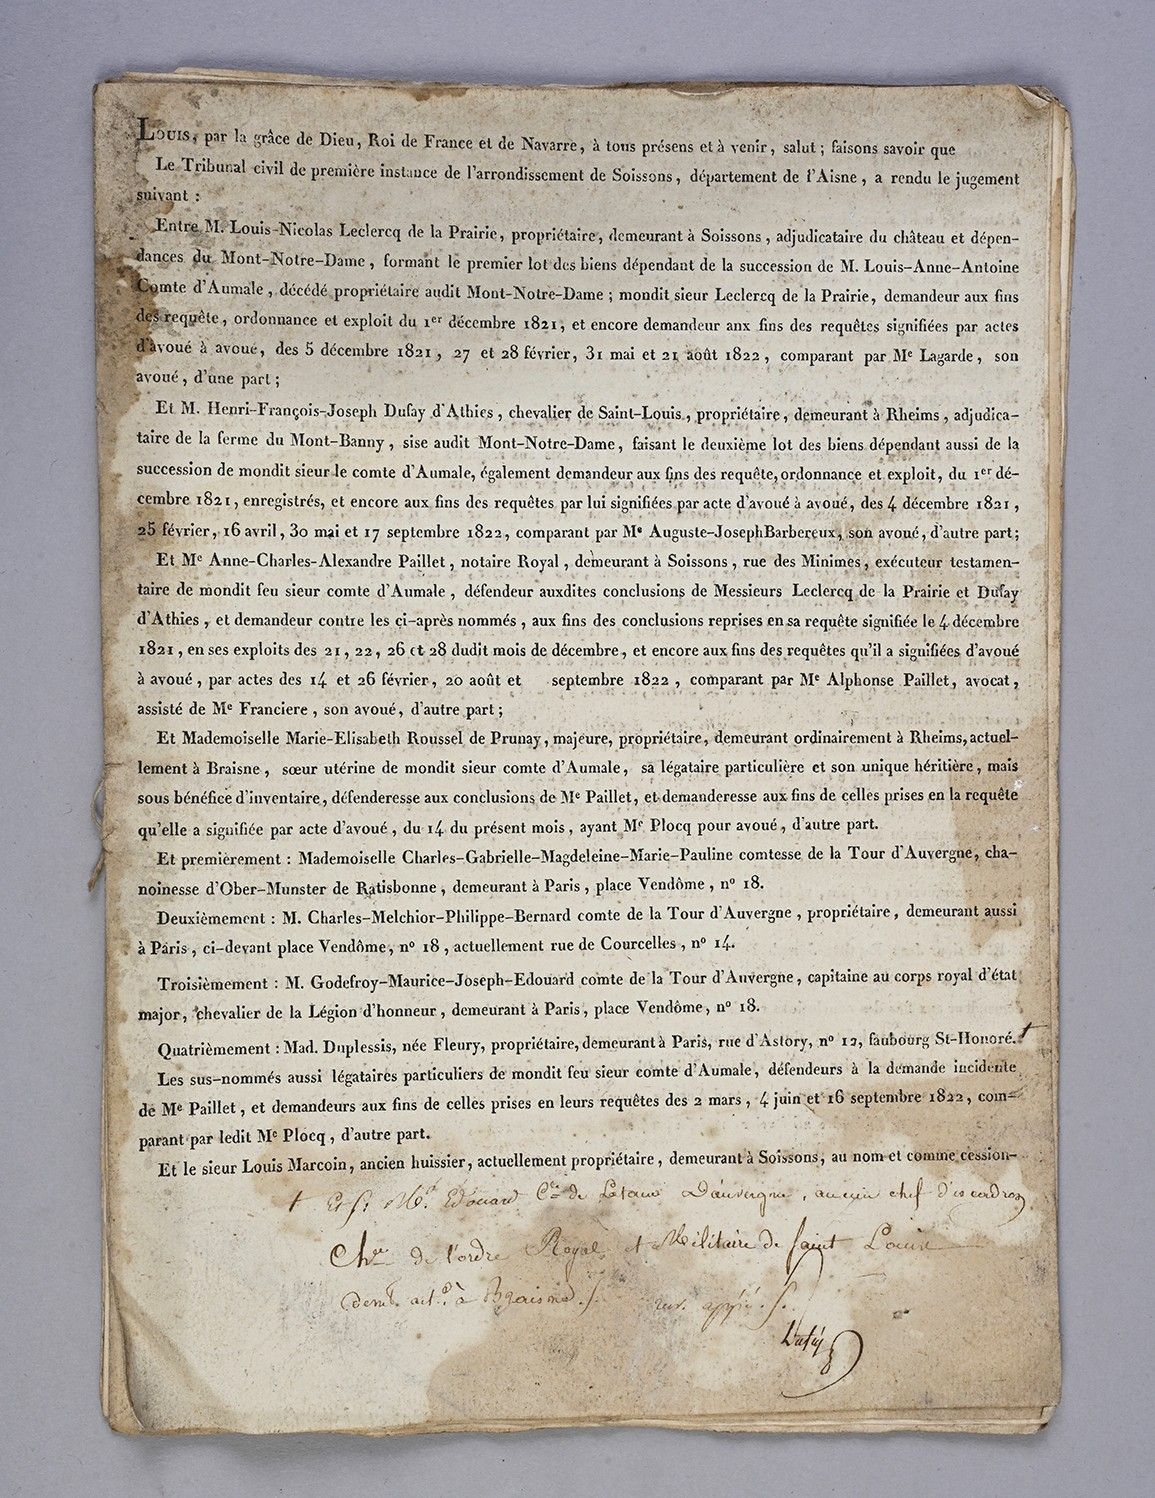 Louis, par la grâce de Dieu, Roi de France et de Navarre, à tous présens et à venir, salut ; faisons savoir que
Le Tribunal civil de première instance de l'arrondissement de Soissons, département de l'Aisne, a rendu le jugement
suivant :
Entre M. Louis-Nicolas Leclercq de la Prairie, propriétaire, demeurant à Soissons, adjudicataire du château et dépen-
dances du Mont-Notre-Dame, formant le premier lot des biens dépendant de la succession de M. Louis-Anne-Antoine
Comte d'Aumale, décédé propriétaire audit Mont-Notre-Dame ; mondit sieur Leclercq de la Prairie, demandeur aux fins
des requête, ordonnance et exploit du 1er décembre 1821, et encore demandeur anx fins des requêtes signifiées par actes
d'avoué à avoué, des 5 décembre 1821, 27 et 28 février, 31 mai et 21 août 1822, comparant par Me Lagarde, son
avoué, d'une part ;
Et M. Henri-François-Joseph Dufay d'Athies, chevalier de Saint-Louis, propriétaire, demeurant à Rheims, adjudica-
taire de la ferme du Mont-Banny, sise audit Mont-Notre-Dame, faisant le deuxième lot des biens dépendant aussi de la
succession de mondit sieur le comte d'Aumale, également demandeur aux fins des requête, ordonnance et exploit, du 1er dé-
cembre 1821, enregistrés, et encore aux fins des requêtes par lui signifiées par acte d'avoué à avoué, des 4 décembre 1821,
25 février, 16 avril, 30 mai et 17 septembre 1822, comparant par Me Auguste-Joseph Barbereux, son avoué, d'autre part ;
Et Me Anne-Charles-Alexandre Paillet, notaire Royal, demeurant à Soissons, rue des Minimes, exécuteur testamen-
taire de mondit feu sieur comte d'Aumale, défendeur auxdites conclusions de Messieurs Leclercq de la Prairie et Dufay
d'Athies, et demandeur contre les ci-après nommés, aux fins des conclusions reprises en sa requête signifiée le 4 décembre
1821, en ses exploits des 21, 22, 26 et 28 dudit mois de décembre, et encore aux fins des requêtes qu'il a signifiées d'avoué
à avoué, par actes des 14 et 26 février, 20 août et septembre 1822, comparant par Me Alphonse Paillet, avocat,
assisté de Me Franciere, son avoué, d'autre part ;
Et Mademoiselle Marie-Elisabeth Roussel de Prunay, majeure, propriétaire, demeurant ordinairement à Rheims, actuel-
lement à Braisne, sœur utérine de mondit sieur comte d'Aumale, sa légataire particulière et son unique héritière, mais
sous bénéfice d'inventaire, défenderesse aux conclusions de Me Paillet, et demanderesse aux fins de celles prises en la requête
qu'elle a signifiée par acte d'avoué, du 14 du présent mois, ayant Me Plocq pour avoué, d'autre part.
Et premièrement : Mademoiselle Charles-Gabrielle-Magdeleine-Marie-Pauline comtesse de la Tour d'Auvergne, cha-
noinesse d'Ober-Munster de Ratisbonne, demeurant à Paris, place Vendôme, no 18.
Deuxièmement : M. Charles-Melchior-Philippe-Bernard comte de la Tour d'Auvergne, propriétaire, demeurant aussi
à Paris, ci-devant place Vendôme, no 18, actuellement rue de Courcelles, no 14.
Troisièmement : M. Godefroy-Maurice-Joseph-Edouard comte de la Tour d'Auvergne, capitaine au corps royal d'état
major, chevalier de la Légion d'honneur, demeurant à Paris, place Vendôme, no 18.
Quatrièmement : Mad. Duplessis, née Fleury, propriétaire, demeurant à Paris, rue d'Astory, no 12, faubourg St-Honoré. †
Les sus-nommés aussi légataires particuliers de mondit feu sieur comte d'Aumale, défendeurs à la demande incidente
de Me Paillet, et demandeurs aux fins de celles prises en leurs requêtes des 2 mars, 4 juin et 16 septembre 1822, com-
parant par ledit Me Plocq, d'autre part.
Et le sieur Louis Marcoin, ancien huissier, actuellement propriétaire, demeurant à Soissons, au nom et comme cession-
† Et Mr. Edouard Cte de Latour D'auvergne, ancien chef d'escadron
Cher de l'ordre Royal et Militaire de Saint Louis
demt. actt. à Braisne